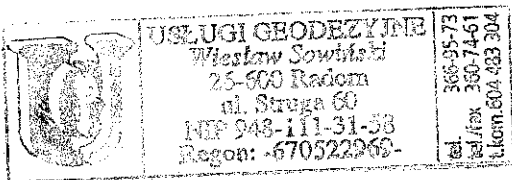 USŁUGI GEODEZYJNE
Wiesław Sowiński
26-600 Radom
ul. Struga 60
NIP 948-111-31-58
Regon: -670522969-
tel. 366-95-73
tel./fax 360-74-61
t.kom. 604 483 304